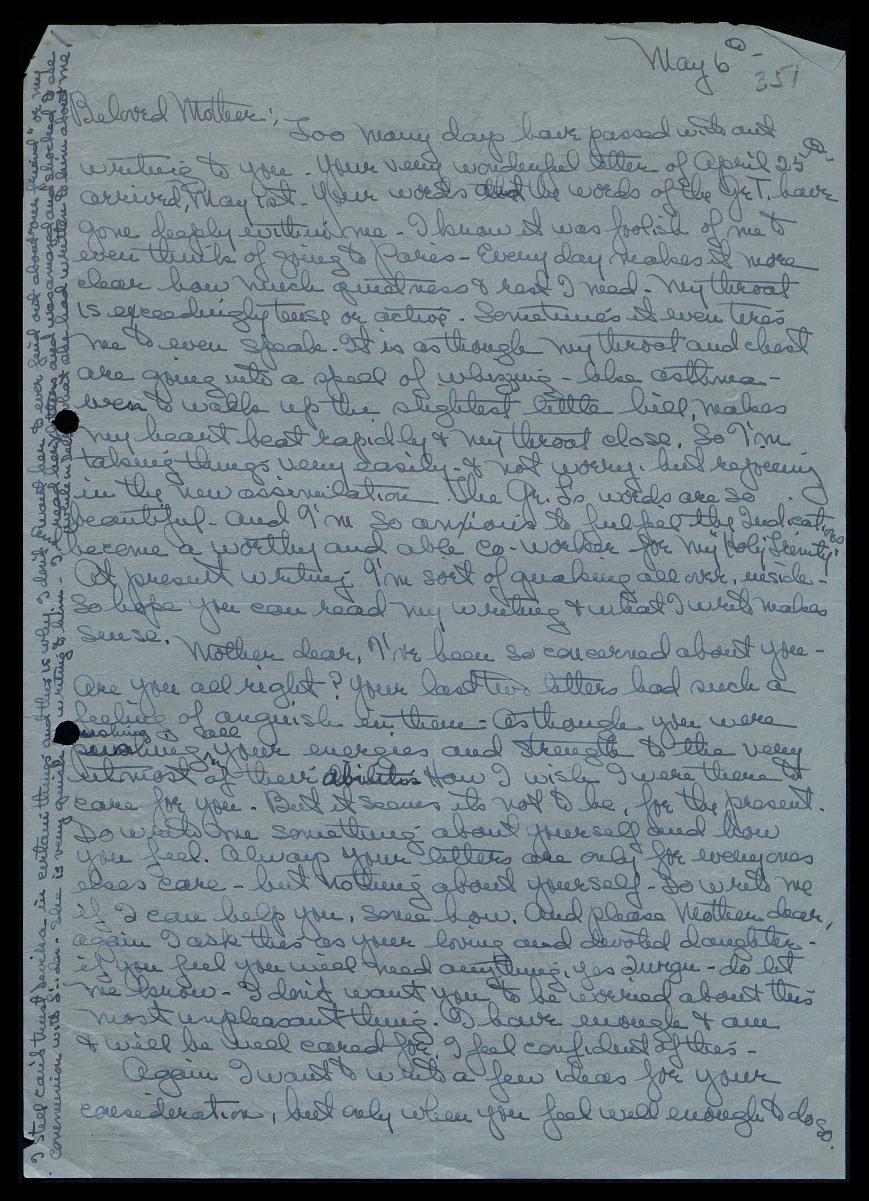 May 6th -
351
Beloved Mother:,
Too many days have passed without
writing to you - Your very wonderful letter of April 25th
arrived, May 1st. Your words and the words of the Gr. T. have
gone deeply within me - I know it was foolish of me to
even think of going to Paris - Every day makes it more
clear how much quietness & rest I need - My throat
is exceedingly tense or active. Sometimes it even tires
me to even speak. It is as though my throat and chest
are going into a spell of whizzing - like asthma -
even to walk up the slightest little hill, makes
my heart beat rapidly & my throat close. So I'm
taking things very easily - & not worry. but rejoicing
in the new assimilation The Gr. Ls words are so
beautiful - And I'm so anxious to fulfil the Indications
become a worthy and able co-worker for my "Holy Trinity"
At present writing I'm sort of quaking all over, inside -
So hope you can read my writing & what I write makes
sense.
Mother dear, I've been so concerned about you -
Are you all right? Your last two letters had such a
feeling of anguish in them - As though you were
pushing is all
your energies and strength to the very
utmost of their abilities How I wish I were there to
care for you. But it seems its not to be, for the present.
Do write me something about yourself and how
you feel. Always your letters are only for everyones
elses care - but nothing about yourself - So write me
if I can help you, some how. And please Mother dear,
again I ask this as your loving and devoted daughter -
if you feel you will need anything, - do let
me know - I don't want you to be worried about this
most unpleasant thing. I have enough & am
& will be well cared for. I feel confident of this -
Again I want to write a few ideas for your
consideration, but only when you feel well enough to do so.
I still can't trust in certain things and this is why. I don't want her to ever find out about our friend" or my
communion with - She is very writing to him - I read her letters and was amazed and shocked to see
what she had written to him about me!